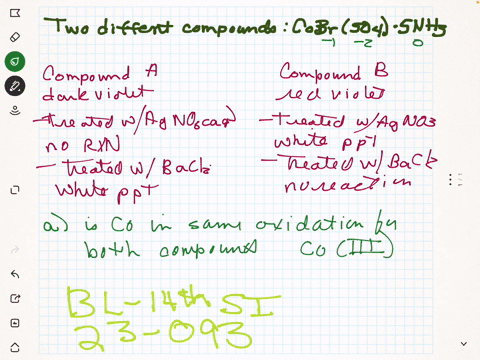 Two diffent compounds: CoBr(SO4)·5NH3
-1 -2 0
Compound A
dark violet
-Treated w/AgNO3(aq)
no RXN
-Treated w/ BaCl2
white ppt
Compound B
red violet
-Treated w/ AgNO3
white ppt
-Treated w/ BaCl2
no reaction
a) is Co in same oxidation by
both compound CO (III)
BL-14th SI
23-093